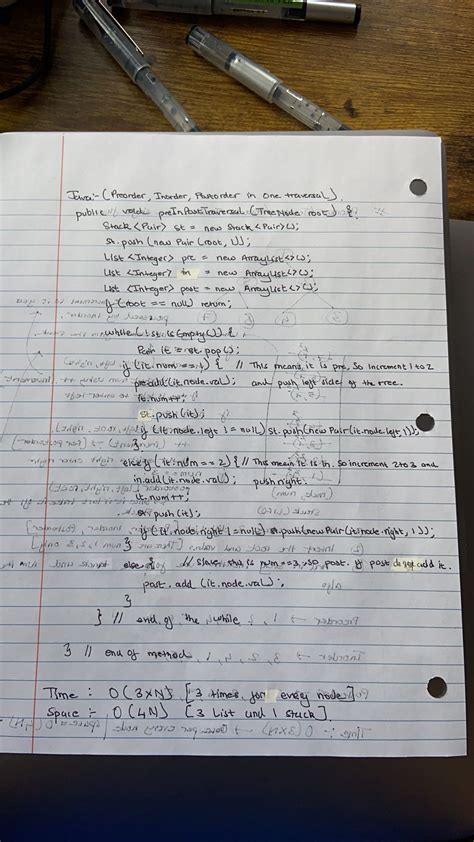 Java:- (Preorder, Inorder, Postorder in one traversal)
public void preInPostTraversal (TreeNode root) {
Stack <Pair> st = new Stack <Pair>();
st.push (new Pair (root, 1));
List <Integer> pre = new ArrayList<>();
List <Integer> in = new ArrayList<>();
List <Integer> post = new ArrayList<>();
if (root == null) return;
while (!st.isEmpty()) {
Pair it = st.pop();
if (it.num == 1) { // This means, it is pre, So increment 1 to 2
pre.add(it.node.val); and push left side of the tree.
it.num++;
st.push(it);
if (it.node.left != null) st.push(new Pair(it.node.left, 1));
}
else if (it.num == 2) { // This mean it is in. So increment 2 to 3 and
in.add(it.node.val); push right.
it.num++;
st.push(it);
if (it.node.right != null) st.push(new Pair(it.node.right, 1));
}
else { // is num == 3, so post. if post add it.
post.add (it.node.val);
}
} // end of the while
} // end of method
Time : O(3×N) [3 times for every node]
Space :- O(4N) [3 List and 1 stack]